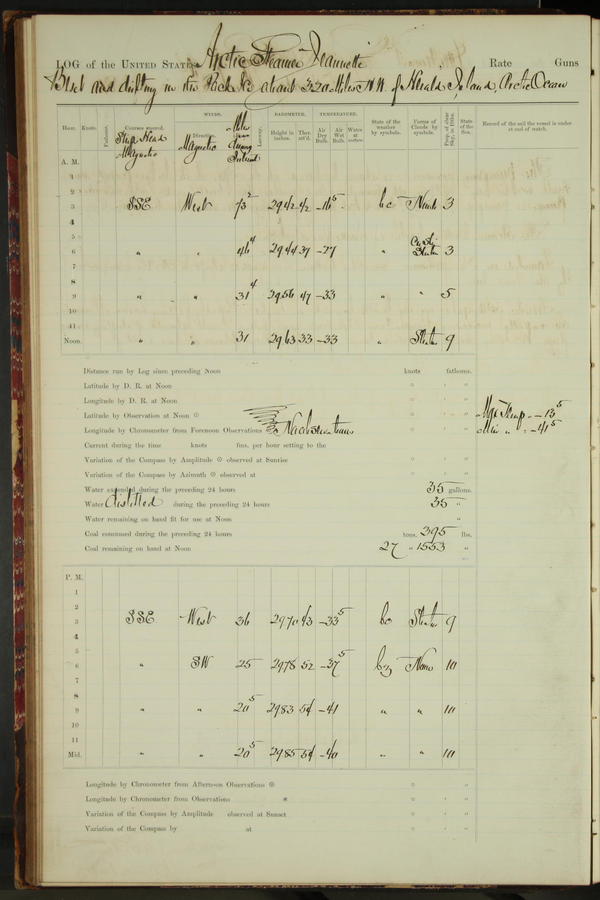 LOG of the UNITED STATES Arctic Steamer Jeannette Rate Guns
Beset and drifting in the Pack Ice about 320 Miles N.W. of Herald Island, Arctic Ocean
WINDS. BAROMETER. TEMPERATURE.
Hour. Knots. Fathoms. Courses steered. Ship's Head Magnetic Direction. Magnetic Leeway. Height in inches. Ther. att'd. Air Dry Bulb. Air Wet Bulb. Water at surface. State of the weather by symbols. Forms of Clouds by symbols. Prop. of clear Sky, in 10ths. State of the Sea. Record of the sail the vessel is under at end of watch.
A. M.
1
2
3 SSE West 73 2 29 42 42 -16 5 bc 3
4
5
6 " " 46 4 29 44 39 -27 " 3
7
8
9 " " 31 4 29 56 47 -33 " " 5
10
11
Noon. " " 31 29 63 33 -33 " 9
Distance run by Log since preceding Noon knots fathoms.
Latitude by D. R. at Noon ° ' "
Longitude by D. R. at Noon ° ' "
Latitude by Observation at Noon ° ' " Max Temp. -13 5
Longitude by Chronometer from Forenoon Observations No observations ° ' " Min " -41 5
Current during the time knots fms. per hour setting to the
Variation of the Compass by Amplitude observed at Sunrise ° ' "
Variation of the Compass by Azimuth observed at ° ' "
Water expended during the preceding 24 hours 35 gallons.
Water distilled during the preceding 24 hours 35 "
Water remaining on hand fit for use at Noon "
Coal consumed during the preceding 24 hours tons. 395 lbs.
Coal remaining on hand at Noon 27 " 1553 "
P. M.
1
2
3 SSE West 36 29 70 43 -33 5 bc 9
4
5
6 " SW 25 29 78 52 -37 5 10
7
8
9 " " 20 5 29 83 54 -41 " " 10
10
11
Mid. " " 20 5 29 85 54 -40 " " 10
Longitude by Chronometer from Afternoon Observations ° ' "
Longitude by Chronometer from Observations * ° ' "
Variation of the Compass by Amplitude observed at Sunset ° ' "
Variation of the Compass by at ° ' "